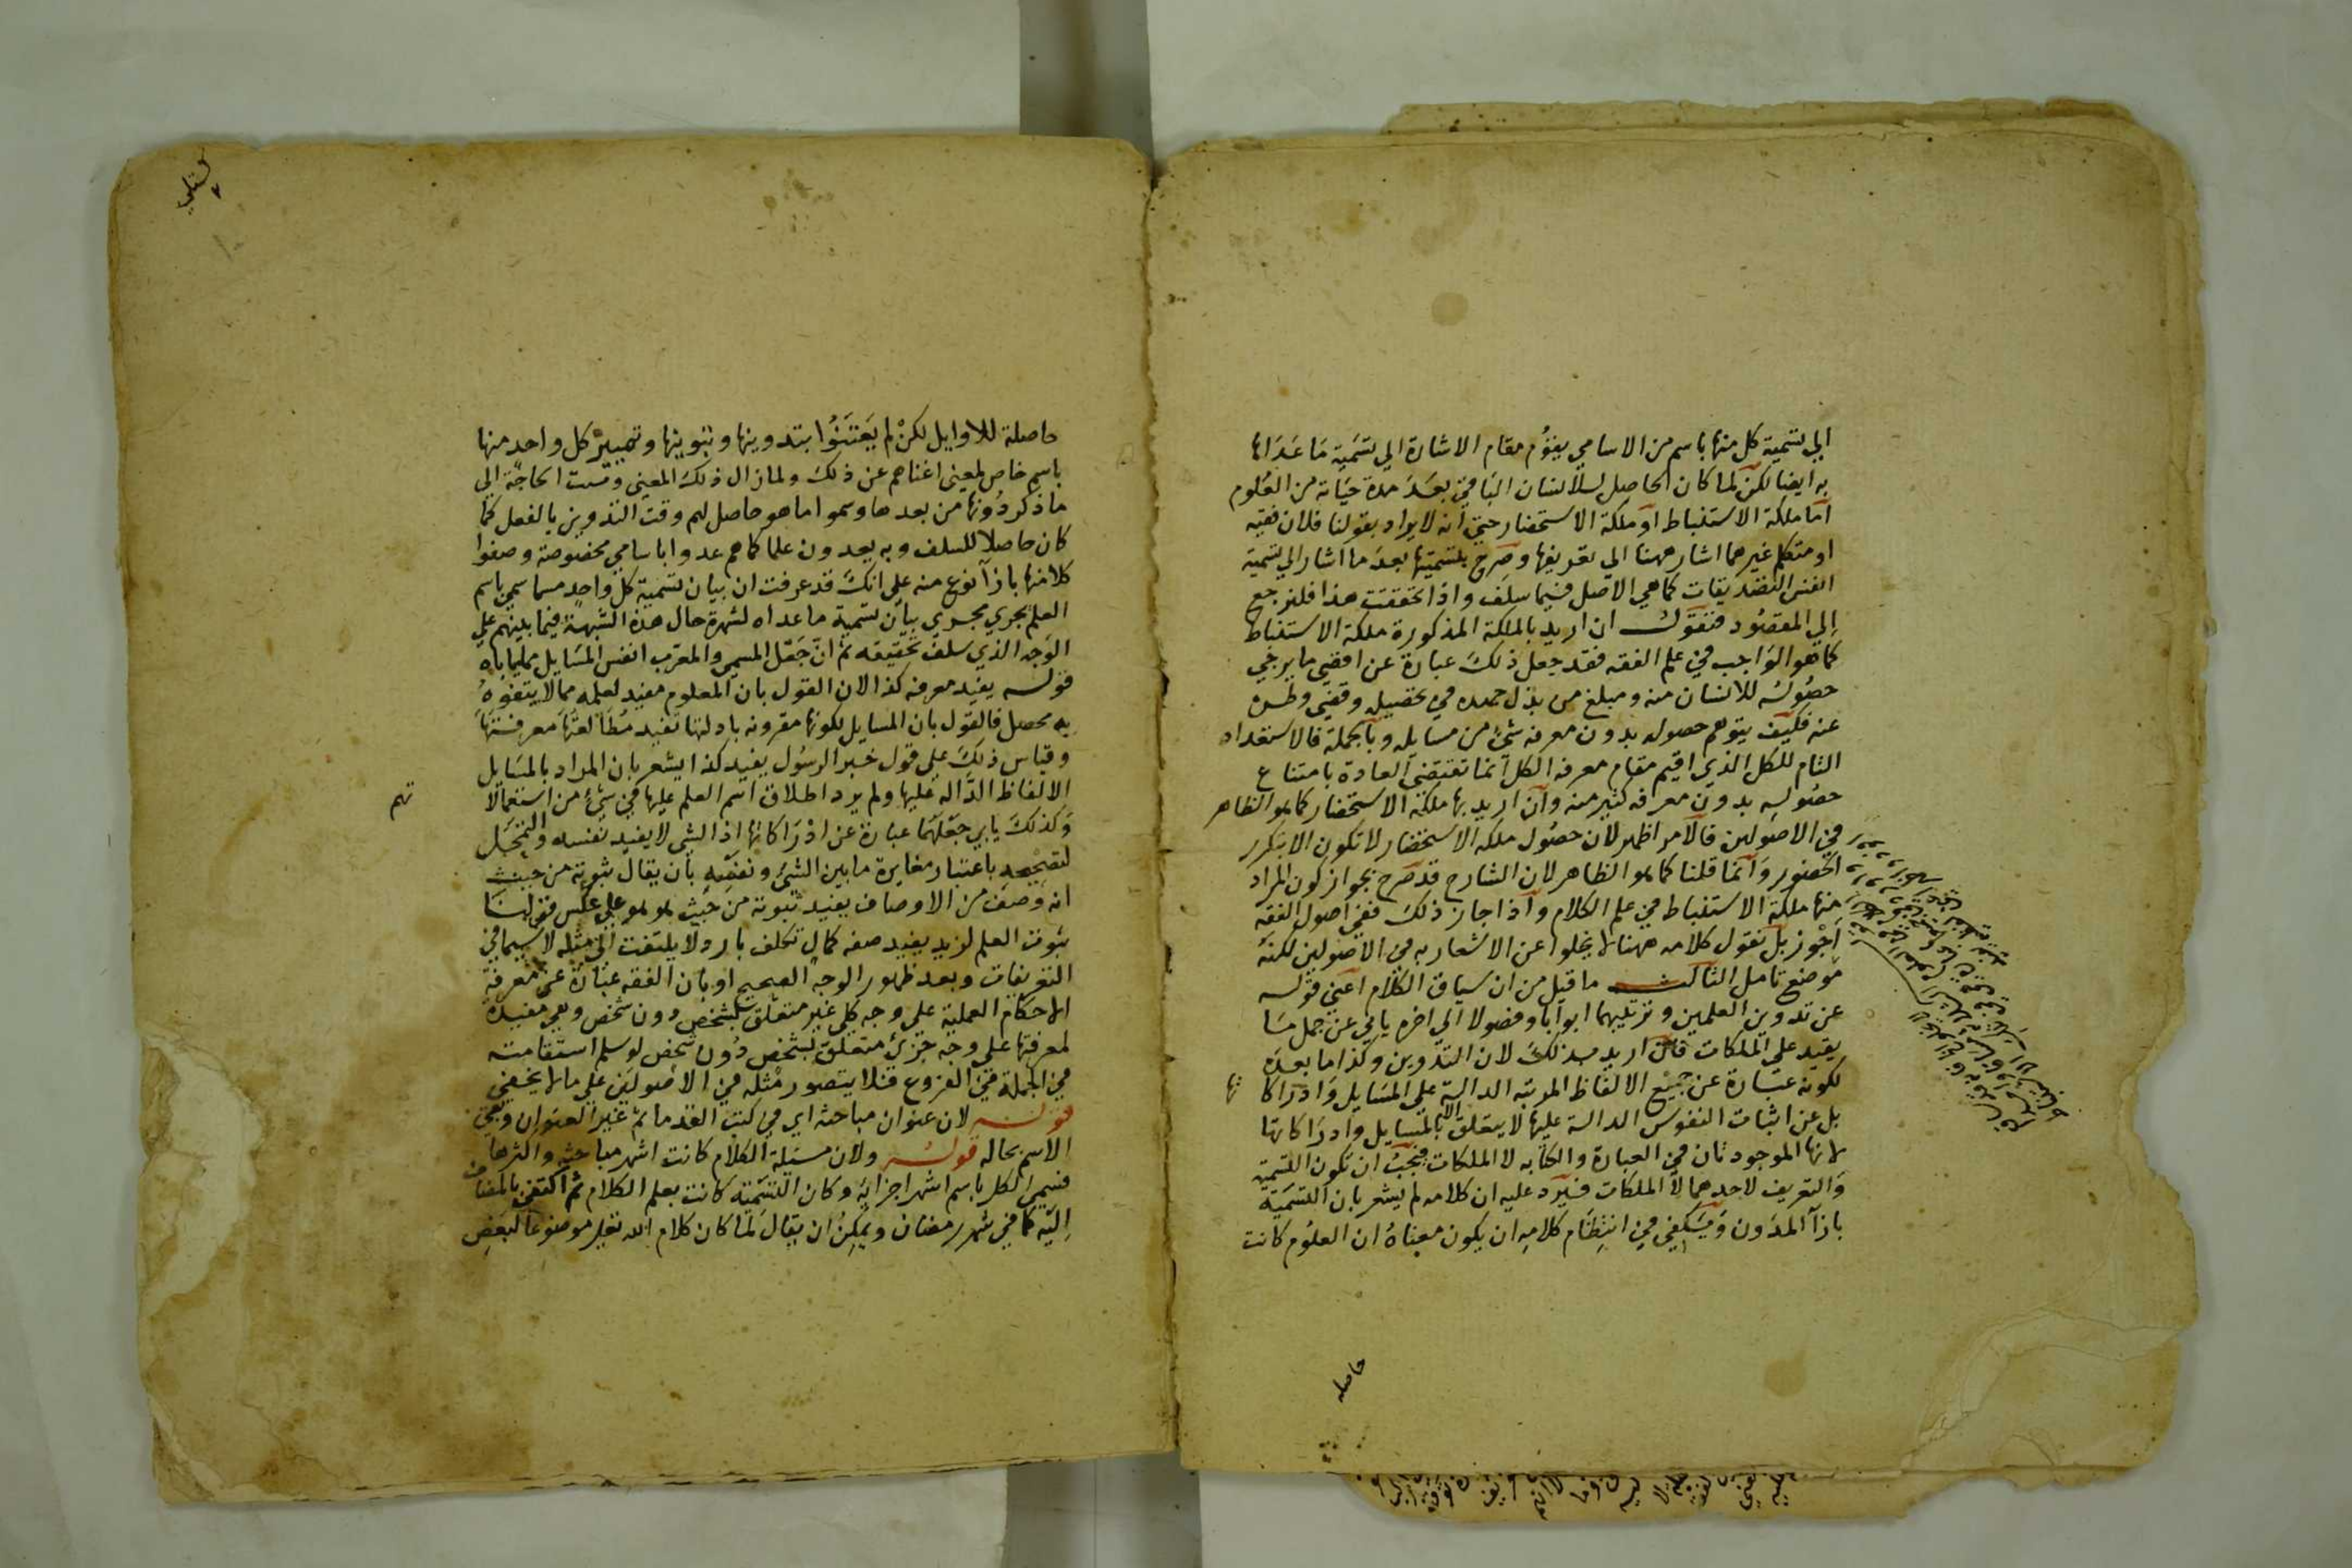 الي تسمية كل منها باسم من الاسامي يقوم مقام الاشارة الي تسمية ما عداها
به ايضا لكن لما كان الحاصل للانسان الباقي بعد مدة حياته من العلوم
اما ملكة الاستنباط او ملكة الاستحضار حتي انه لا يراد بقولنا فلان فقيه
او متكلم غيرهما اشار ههنا الي تعريفها وصرح بتسميتها بعد ما اشار الي تسمية
انفس التصديقات كما هي الاصل فيما سلف واذا تحققت هذا فلنرجع
الي المقصود فنقول ان اريد بالملكة المذكورة ملكة الاستنباط
كما هو الواجب في علم الفقه فقد جعل ذلك عبارة عن اقصي ما يرجي
حصوله للانسان منه ومبلغ من بذل جهده في تحصيله وقضي وطره
عنه فكيف يتوهم حصوله بدون معرفة شئ من مسايله وبالجملة فالاستعداد
التام للكل الذي اقيم مقام معرفة الكل انما تقتضي العادة بامتناع
حصوله بدون معرفة كثير منه وان اريد بها ملكة الاستحضار كما هو الظاهر
في الاصولين فالامر اظهر لان حصول ملكة الاستحضار لا تكون الا بتكرر
الحضور وانما قلنا كما هو الظاهر لان الشارح قد صرح بجواز كون المراد
منها ملكة الاستنباط في علم الكلام واذا جاز ذلك ففي اصول الفقه
اجوز بل نقول كلامه ههنا لا يخلوا عن الاشعار به في الاصولين لكنه
موضع تامل الثالث ما قيل من ان سياق الكلام اعني قوله
عن تدوين العلمين وترتيبهما ابوابا وفصولا الي اخره يابي عن حمل مسا
يفيد علي الملكات فان اريد بذلك لان التدوين وكذا ما بعده
لكونه عبارة عن جميع الالفاظ المرتبه الدالة علي المسايل وادراكا تها
بل عن اثبات النقوش الدالة عليها لا يتعلق الا بالمسايل وادراكاتها
لانها الموجود تان في العبارة والكتابه لا الملكات فيجب ان تكون التسمية
والتعريف لاحدهما لا الملكات فيرد عليه ان كلامه لم يشعر بان التسمية
بازآ المدون ويكفي في انتظام كلامه ان يكون معناه ان العلوم كانت
حاصله
حاصلة للاوايل لكن لم يعتنوا بتدوينها وتبويبها وتمييز كل واحد منها
باسم خاص لمعني اغناهم عن ذلك ولما زال ذلك المعني ومست الحاجة الي
ما ذكر دونها من بعدها وسموا ما هو حاصل لهم وقت التدوين بالفعل كما
كان حاصلا للسلف وبه يعدون علما كما هم عدوا باسامي مخصوصة وصفوا
كلا منها بازآ نوع منه علي انك قد عرفت ان بيان تسمية كل واحد مما سمي باسم
العلم يجري مجري بيان تسمية ما عداه لشهرة حال هذه الشبهة فيما بينهم علي
الوجه الذي سلف تحقيقه ثم ان جعل المسمي والمعرب انفس المسايل مما ياباه
قوله يفيد معرفة كذا لان القول بان المعلوم مفيد لعلمه مما لا يتفوه
به محصل فالقول بان المسايل لكونها مقرونه بادلتها تفيد مطالعتها معرفتها
وقياس ذلك علي قول خبر الرسول يفيد كذا يشعر بان المراد بالمسايل
الالفاظ الداله عليها ولم يرد اطلاق اسم العلم عليها في شئ من استعمالا تهم
وكذلك يابي جعلها عبارة عن ادراكاتها اذ الشي لا يفيد نفسه والتمحل
لتصحيحه باعتبار مغايرة ما بين الشئ ونفسه بان يقال ثبوته من حيث
انه وصف من الاوصاف يفيد ثبوته من حيث هو هو علي عكس قولنا
ثبوت العلم لزيد يفيد صفه كمال تكلف بارد ولا يلتفت الي مثله لا سيما في
التعريفات وبعد ظهور الوجه الصحيح او بان الفقه عبارة عن معرفة
الاحكام العملية علي وجه كلي غير متعلق بشخص دون شخص وهي مفيدة
لمعرفتها علي وجه جزئ متعلق بشخص دون شخص لو سلم استقامته
في الجملة في الفروع فلا يتصور مثله في الاصولين علي ما لا يخفي
قوله لان عنوان مباحثه اي في كتب القدما ثم غير العنوان وبقي
الاسم بحاله قوله ولان مسئلة الكلام كانت اشهر مباحثه واكثرها
فسمي الكل باسم اشهر اجزايه وكان التسمية كانت بعلم الكلام ثم اكتفي بالمضاف
اليه كما في شهر رمضان ويمكن ان يقال لما كان كلام الله تعلي موضوعا لبعض